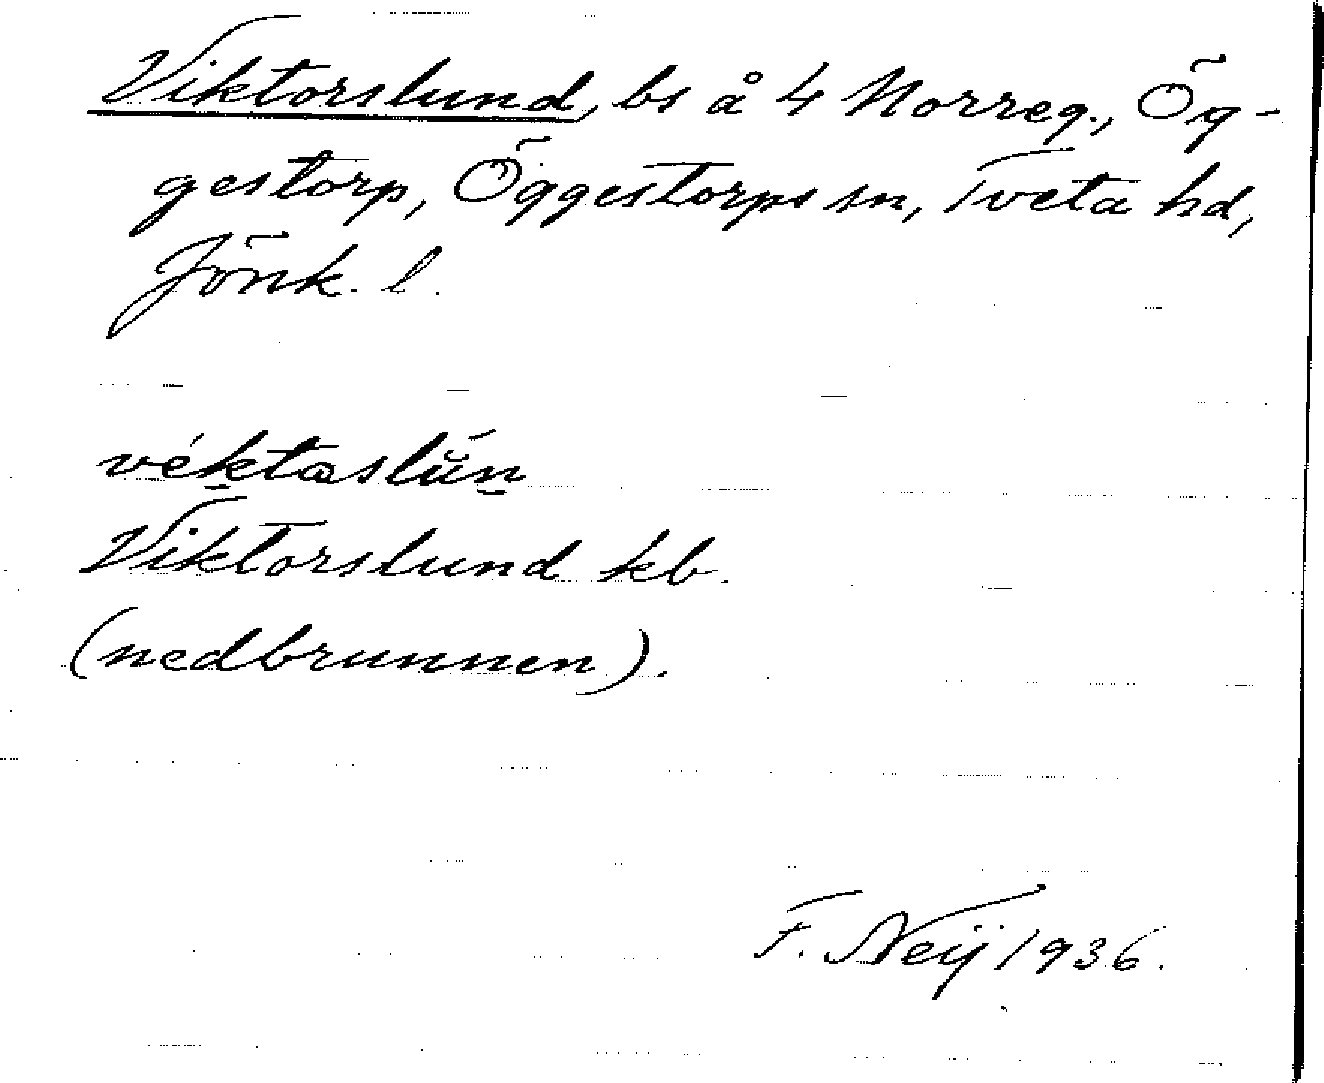 Viktorslund, bs å 4 Norreg., Ög-
gestorp, Öggestorps sn, Tveta hd,
Jönk. l.
véktaslŭ́n
Viktorslund kb.
(nedbrunnen).
F. Neij 1936.